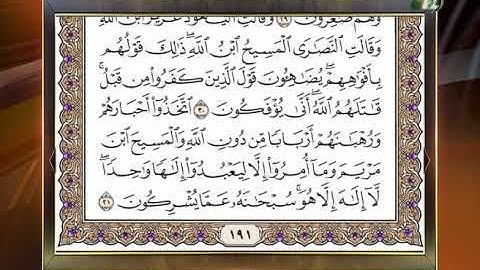 وَهُمْ صَٰغِرُونَ ٢٩ وَقَالَتِ ٱلْيَهُودُ عُزَيْرٌ ٱبْنُ ٱللَّهِ
وَقَالَتِ ٱلنَّصَٰرَى ٱلْمَسِيحُ ٱبْنُ ٱللَّهِ ۖ ذَٰلِكَ قَوْلُهُم
بِأَفْوَٰهِهِمْ ۖ يُضَٰهِـُٔونَ قَوْلَ ٱلَّذِينَ كَفَرُوا۟ مِن قَبْلُ ۚ
قَٰتَلَهُمُ ٱللَّهُ ۚ أَنَّىٰ يُؤْفَكُونَ ٣٠ ٱتَّخَذُوٓا۟ أَحْبَارَهُمْ
وَرُهْبَٰنَهُمْ أَرْبَابًا مِّن دُونِ ٱللَّهِ وَٱلْمَسِيحَ ٱبْنَ
مَرْيَمَ وَمَآ أُمِرُوٓا۟ إِلَّا لِيَعْبُدُوٓا۟ إِلَٰهًا وَٰحِدًا ۖ
لَّآ إِلَٰهَ إِلَّا هُوَ ۚ سُبْحَٰنَهُۥ عَمَّا يُشْرِكُونَ ٣١
١٩١